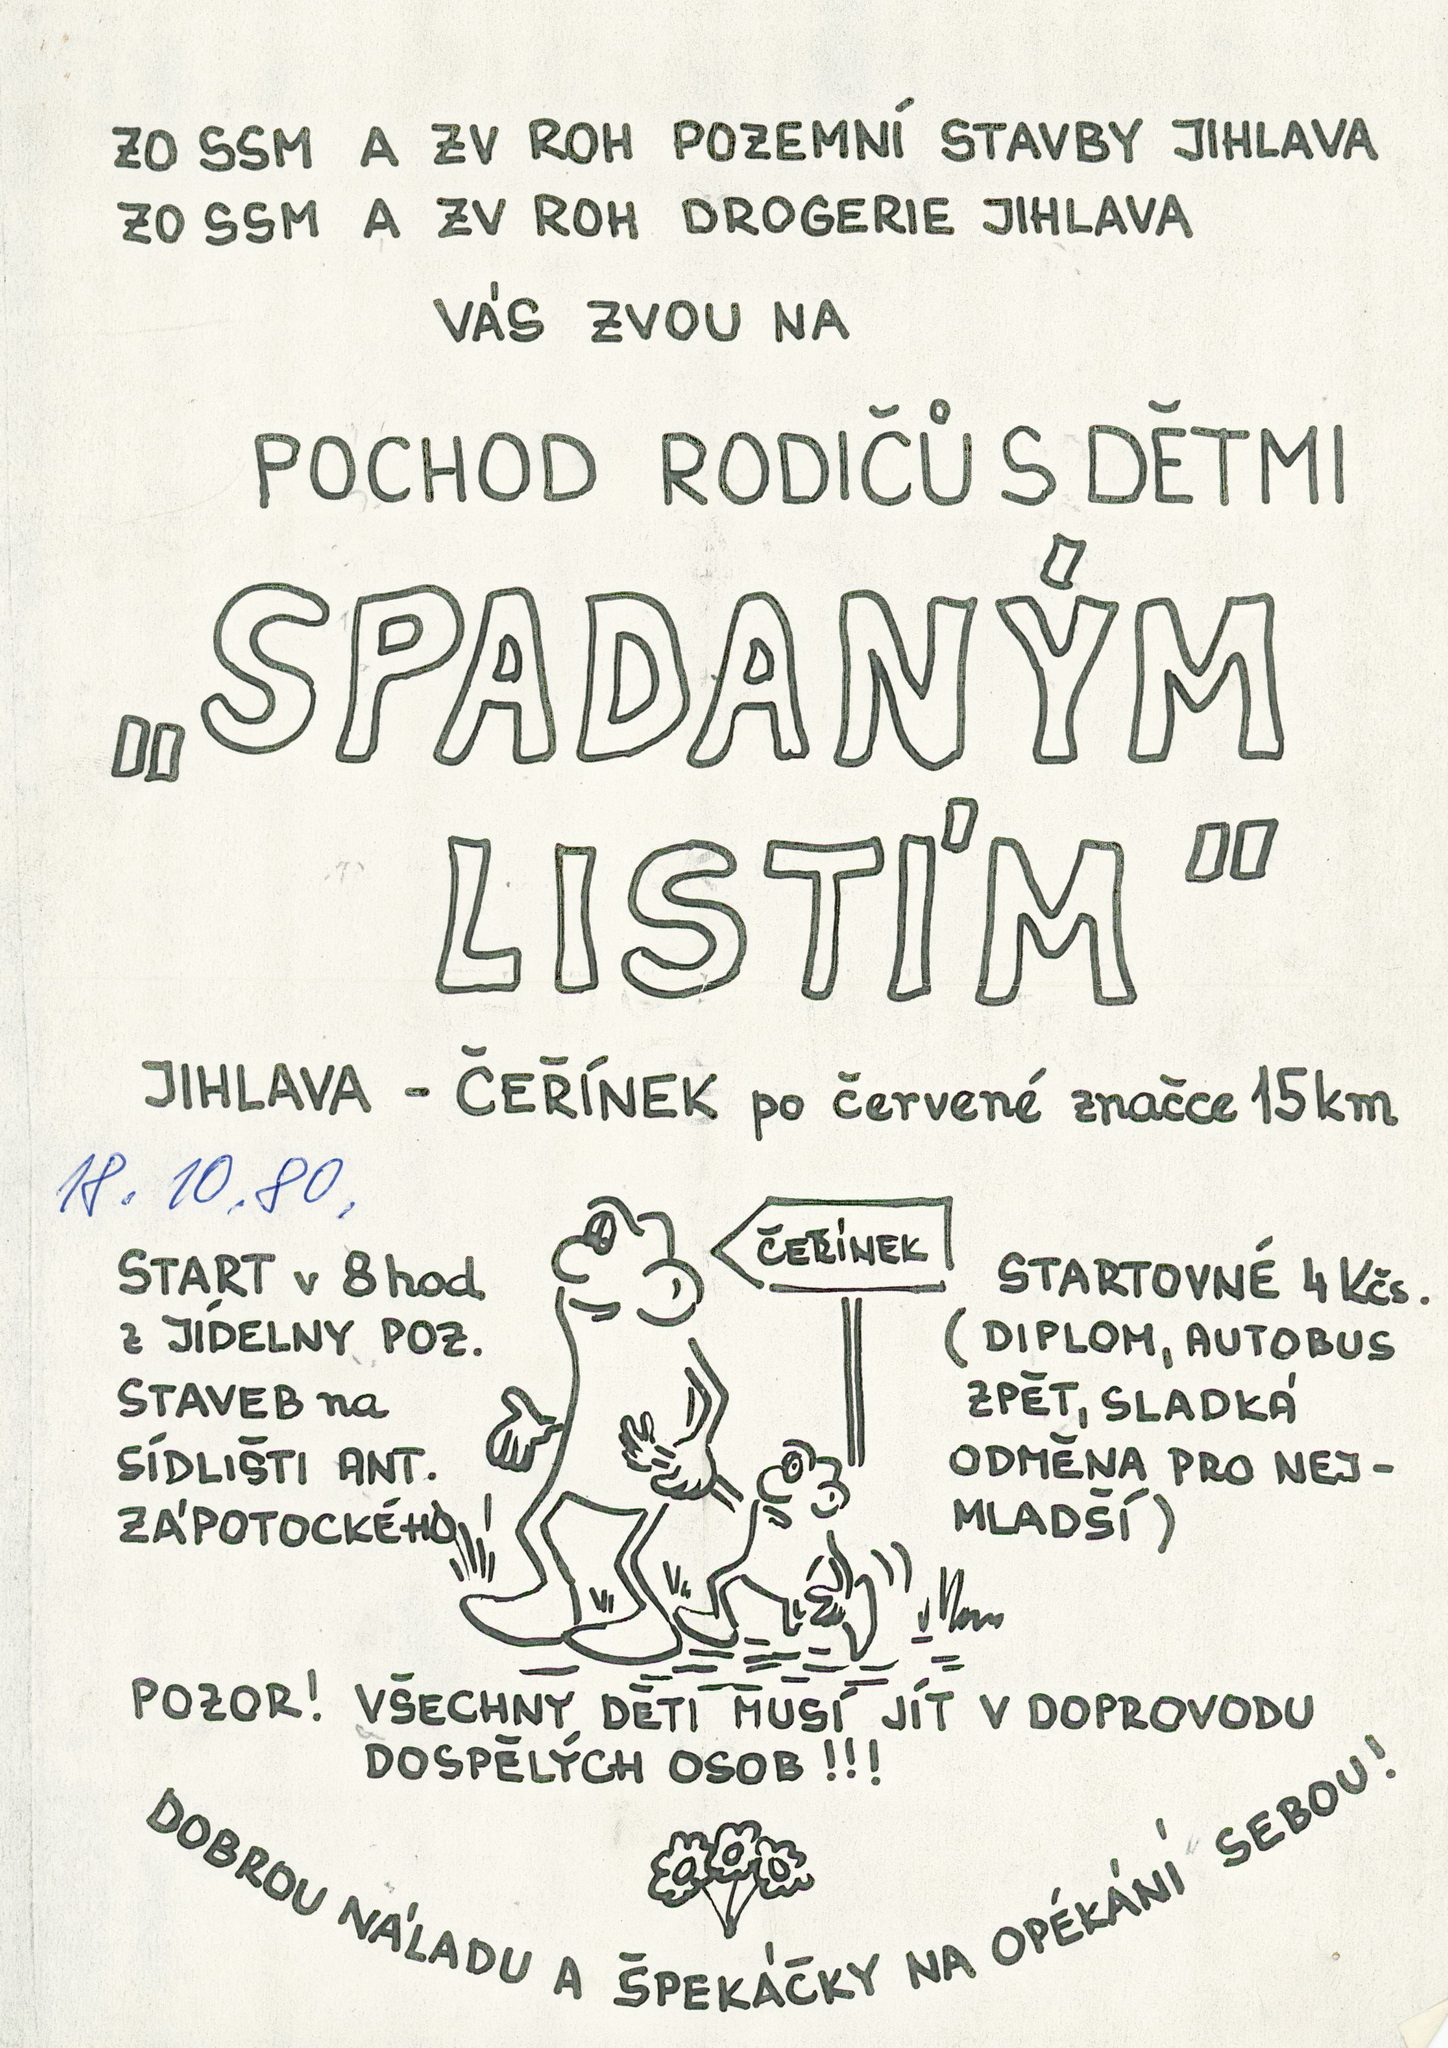 ZO SSM A ZV ROH POZEMNÍ STAVBY JIHLAVA
ZO SSM A ZV ROH DROGERIE JIHLAVA
VÁS ZVOU NA
POCHOD RODIČŮ S DĚTMI
„SPADANÝM
LISTÍM"
JIHLAVA - ČEŘÍNEK po červené značce 15km
18. 10. 80.
ČEŘÍNEK
START v 8 hod
z JÍDELNY POZ.
STAVEB na
SÍDLIŠTI ANT.
ZÁPOTOCKÉHO
STARTOVNÉ 4 Kčs.
(DIPLOM, AUTOBUS
ZPĚT, SLADKÁ
ODMĚNA PRO NEJ-
MLADŠÍ)
POZOR! VŠECHNY DĚTI MUSÍ JÍT V DOPROVODU
DOSPĚLÝCH OSOB!!!
DOBROU NÁLADU A ŠPEKÁČKY NA OPÉKÁNÍ SEBOU!